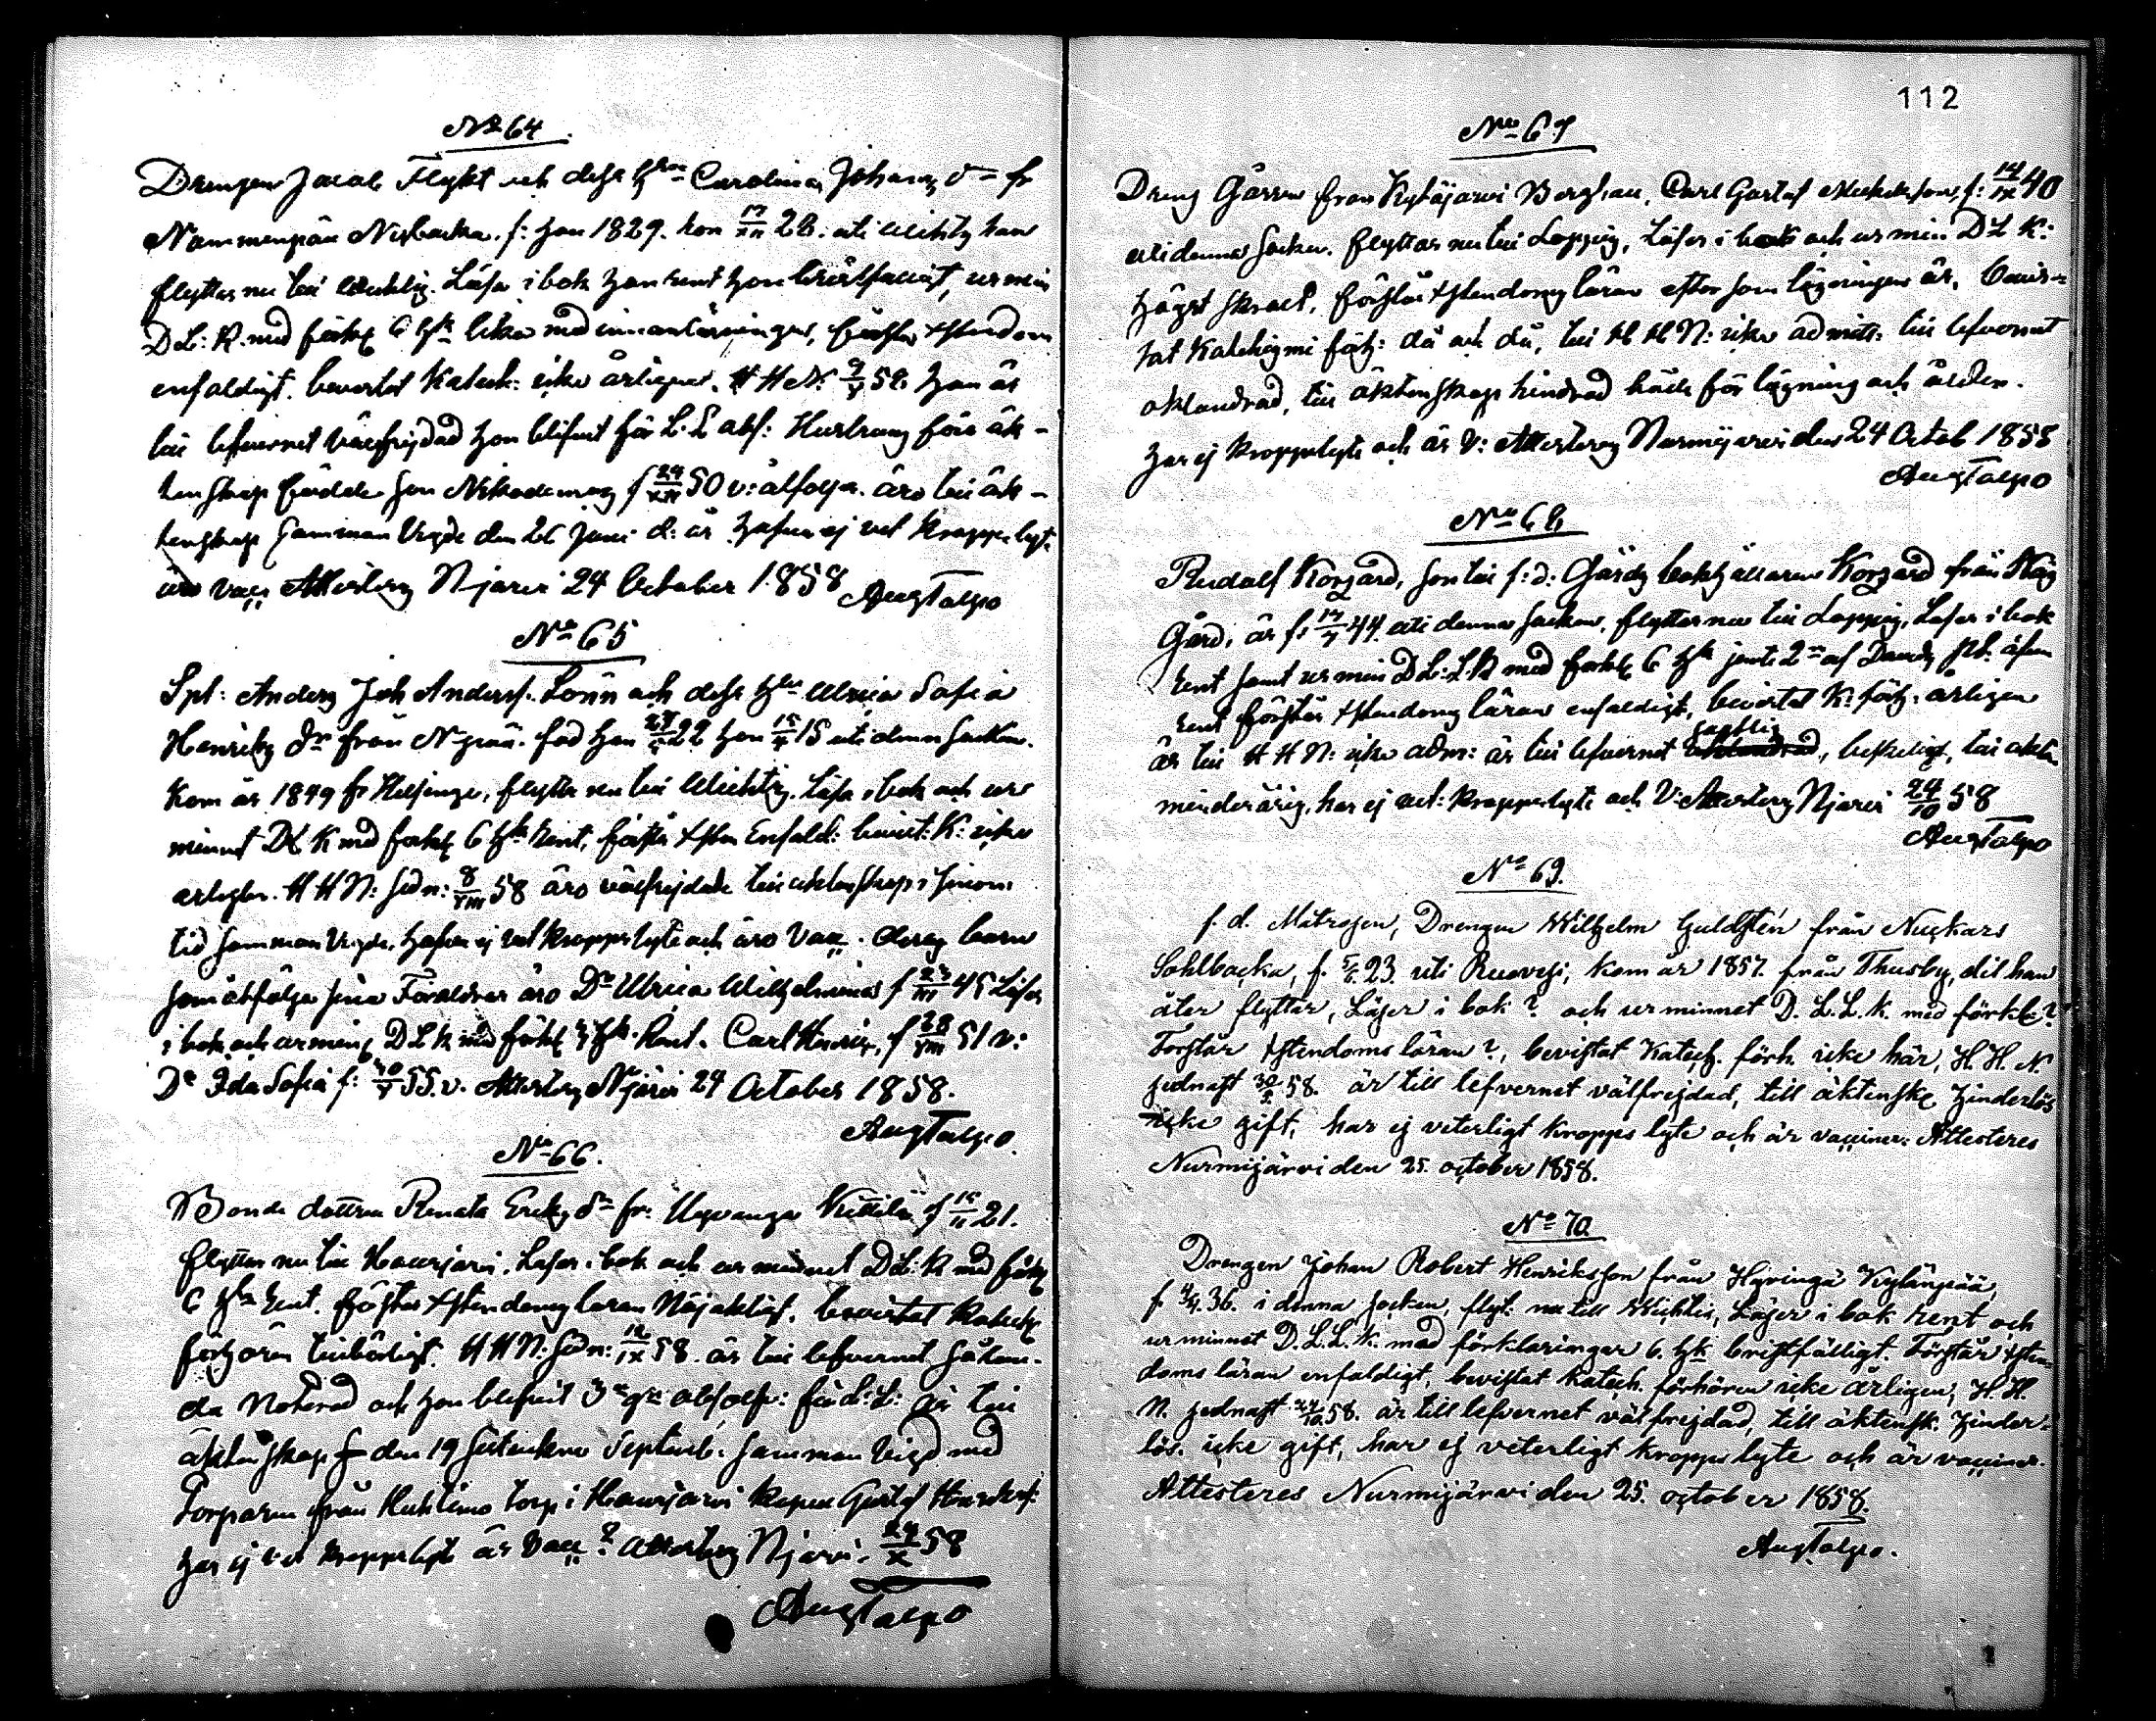 No 64
Drengen Jacob Flykt och dess h Carolina Johans dr fr
Nummenpää Nisbacka. f: han 1829. hon 17/XII 26. uti Wichtis han
flytta nu till Wichtis. Läsa i bok han rent hon bristfälligt, ur min
D L: K. med förkl 6 Hst lika med innanläsningen, förstår Xstendom
enfaldigt. bevistat Katech: icke årligen. H H N. 58 han är
till lefvernet välfrejdad hon blifvit för L. L abs: Hustruns före äk-
tenskap födde son Nikodemus f 24/XII 50 v: åtfölja. äro till äk-
tenskap samman Vigde den 26 Juni d: år hafva ej vet kroppslyte
äro vacc Attesteras Njärvi 24 October 1858
Aug Talpo
No 65
Spl: Anders Joh Anderss. Lönn och dess h Ulrica Sofia
Henriks dr från N. född han 22 hon 15 uti denna socken.
kom år 1849 fr Helsinge, flytta nu till Wichtis. Läsa i bok och ur
minnet D L K med förkl 6 Hst rent, förstå Xsten Enfald: bevist: K: icke
årligen. H H N: sedn: 8/VIII 58 äro välfrejdade till äktenskap i sinom
tid samman Vigde. hafva ej vet kroppslyte och äro Vacc. deras barn
som åtfölja sina Föräldrar äro Dr Ulrica Wilhelmina f 23/III 45 Läser
i bok och ur min D L K med förkl Hst. Rent. Carl Henric, f 28/VIII 51 v:
Dr Ida Sofia f: 55. v. Attesteras Njärvi 24 October 1858.
Aug Talpo
No 66.
Bonde dottren Renata Eriks dr fr: Uspanga f 21.
flyttar nu till Hausjärvi. Läser i bok och ur minnet D L: K med förkl
6 Hst rent. förstår Xstendoms läran Nöjaktigt. bevistat Katech
förhören tillbörligt. H H N: sedn: 12/IX 58. är till lefvernet sålun-
da Noterad och hon blifvit 3 gr absolv: för L: L: är till
äktenskap den 19 Septemb: samman Vigd med
Torparen från Huhtimo torp i Hausjärvi Gustaf
har ej vet kroppslyte är Vacc? attesteras Njärvi 24/X 58
Aug Talpo
112
No 67
Dreng Gåssen från Kytäjärvi Carl Gustaf Michelsson, f: 14/IX 40
uti denna socken. flyttar nu till Loppis, Läser i bok och ur min D L K:
högst svart. förstår Xstendoms läran efter som läsningen är. bevis-
tat Katechismi förh: då och då, till H H N: icke admitt: till lefvernet
oklandrad, till äktenskap hindrad både för läsning och ålder.
har ej kroppslyte och är V: Attesteras Nurmijärvi den 24 Octob 1858
Aug Talpo
No 68
Rudolf Korgård, son till f: d: Gårds bokhållaren Korgård från
Gård, är f: 44. uti denna socken, flyttar nu till Loppis, Läser i bok
rent samt ur min D L: L K med förkl 6 Hst jemte 2 af Davids Ps. äfven
rent förstår Xstendoms läran enfaldigt, bevistat K: förh. årligen
är till H H N: icke adm: är till lefvernet beskedligt, till äkten
minderårig, har ej vet: kroppslyte och V: Attesteras Njärvi 24/10 58
Aug Talpo
No 69.
f. d. Matrosen, Drengen Wilhelm Guldstén från Nuckars
Sohlbacka, f. 23. uti Ruovesi, kom år 1857. från Thusby, dit han
åter flyttar, Läser i bok? och ur minnet D. L. L. K. med förkl:?
Förstår Xstendoms läran?, bevistat Katech. förh. icke här, H. H. N.
sednast 58. är till lefvernet välfrejdad, till äktensk hinderlös
icke gift, har ej veterligt kropps lyte och är vacciner: Attesteres
Nurmijärvi den 25. october 1858.
No 70.
Drengen Johan Robert Henriksson från Hyvingä Kylänpää,
f. 36. i denna socken, flyt: nu till Wichtis, Läser i bok rent och
ur minnet D. L. L. K. med förklaringar 6. Hst bristfälligt. Förstår Xsten-
doms läran enfaldigt, bevistat Katech. förhören icke årligen, H. H.
N. sednast 58. är till lefvernet välfrejdad, till äktensk. hinder-
lös. icke gift, har ej veterligt kropps lyte och är vacciner.
Attesteres Nurmijärvi den 25. october 1858.
Aug Talpo.